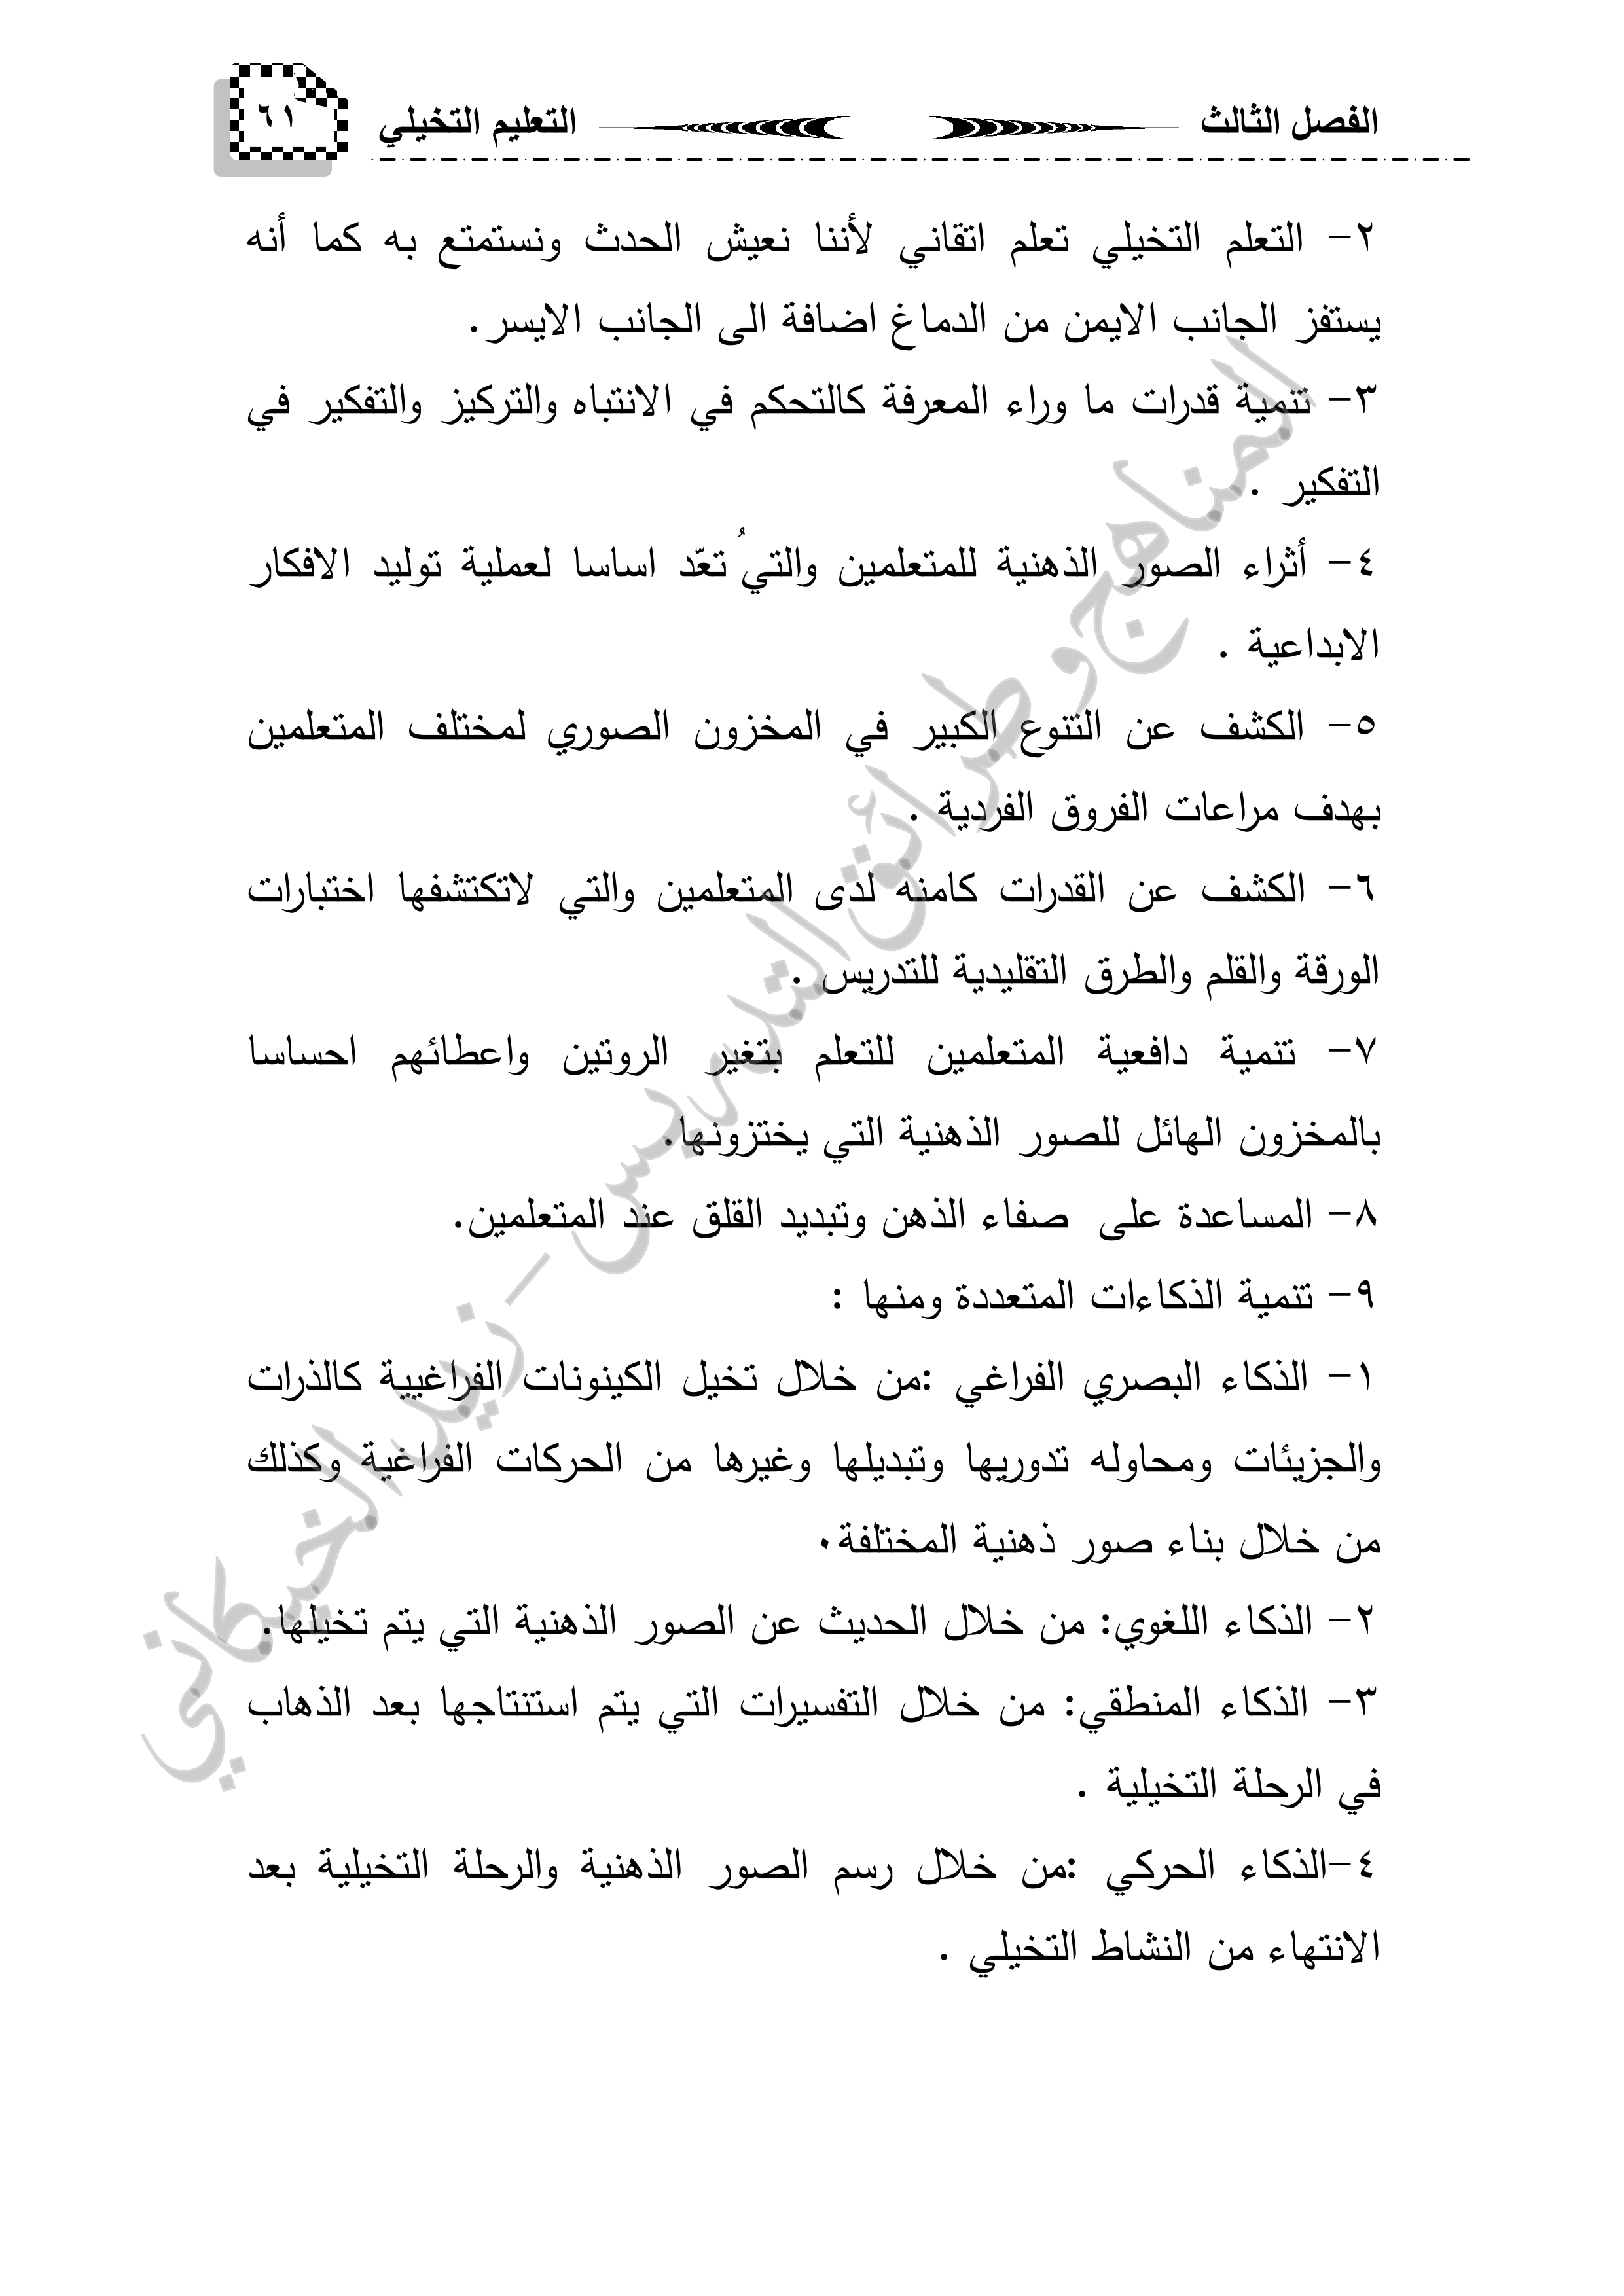 الفصل الثالث التعليم التخيلي ٦١
٢- التعلم التخيلي تعلم اتقاني لأننا نعيش الحدث ونستمتع به كما أنه
يستفز الجانب الايمن من الدماغ اضافة الى الجانب الايسر.
٣- تنمية قدرات ما وراء المعرفة كالتحكم في الانتباه والتركيز والتفكير في
التفكير .
٤- أثراء الصور الذهنية للمتعلمين والتي ُتعّد اساسا لعملية توليد الافكار
الابداعية .
٥- الكشف عن التنوع الكبير في المخزون الصوري لمختلف المتعلمين
بهدف مراعات الفروق الفردية .
٦- الكشف عن القدرات كامنه لدى المتعلمين والتي لاتكتشفها اختبارات
الورقة والقلم والطرق التقليدية للتدريس .
٧- تنمية دافعية المتعلمين للتعلم بتغير الروتين واعطائهم احساسا
بالمخزون الهائل للصور الذهنية التي يختزونها.
٨- المساعدة على صفاء الذهن وتبديد القلق عند المتعلمين.
٩- تنمية الذكاءات المتعددة ومنها :
١- الذكاء البصري الفراغي :من خلال تخيل الكينونات الفراغيية كالذرات
والجزيئات ومحاوله تدوريها وتبديلها وغيرها من الحركات الفراغية وكذلك
من خلال بناء صور ذهنية المختلفة٠
٢- الذكاء اللغوي: من خلال الحديث عن الصور الذهنية التي يتم تخيلها.
٣- الذكاء المنطقي: من خلال التفسيرات التي يتم استنتاجها بعد الذهاب
في الرحلة التخيلية .
٤-الذكاء الحركي :من خلال رسم الصور الذهنية والرحلة التخيلية بعد
الانتهاء من النشاط التخيلي .
المناهج وطرائق التدريس - زيد الخيكاني